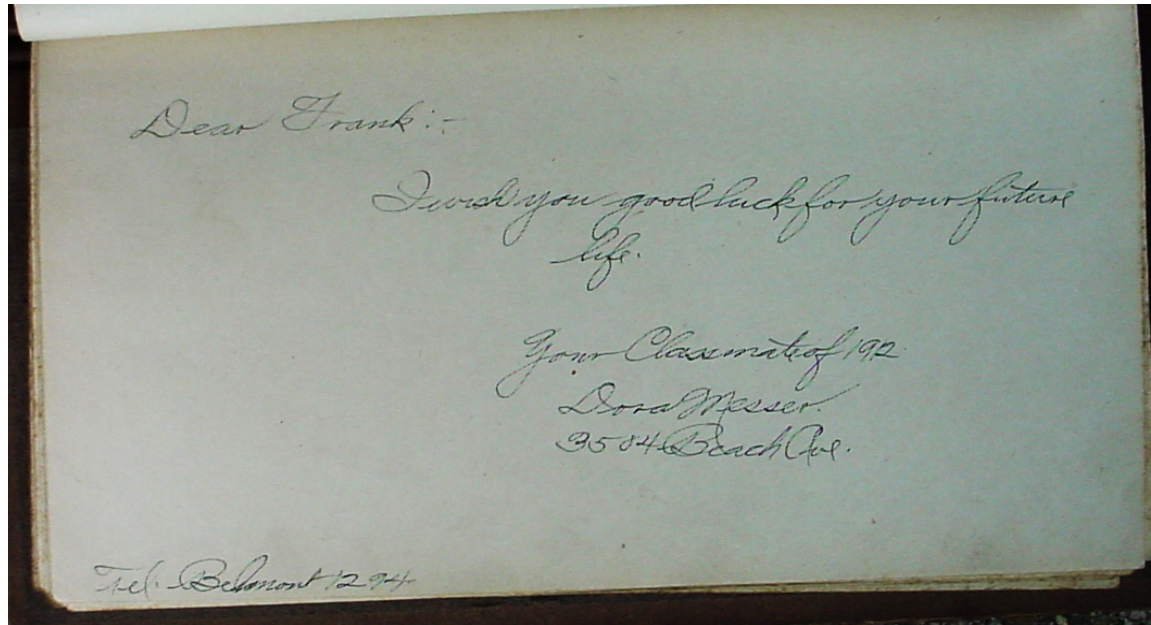 Dear Frank:-
I wish you good luck for your future
life.
Your Classmate of 192
Dora Messer.
3504 Beach Ave.
Tel. Belmont 1294